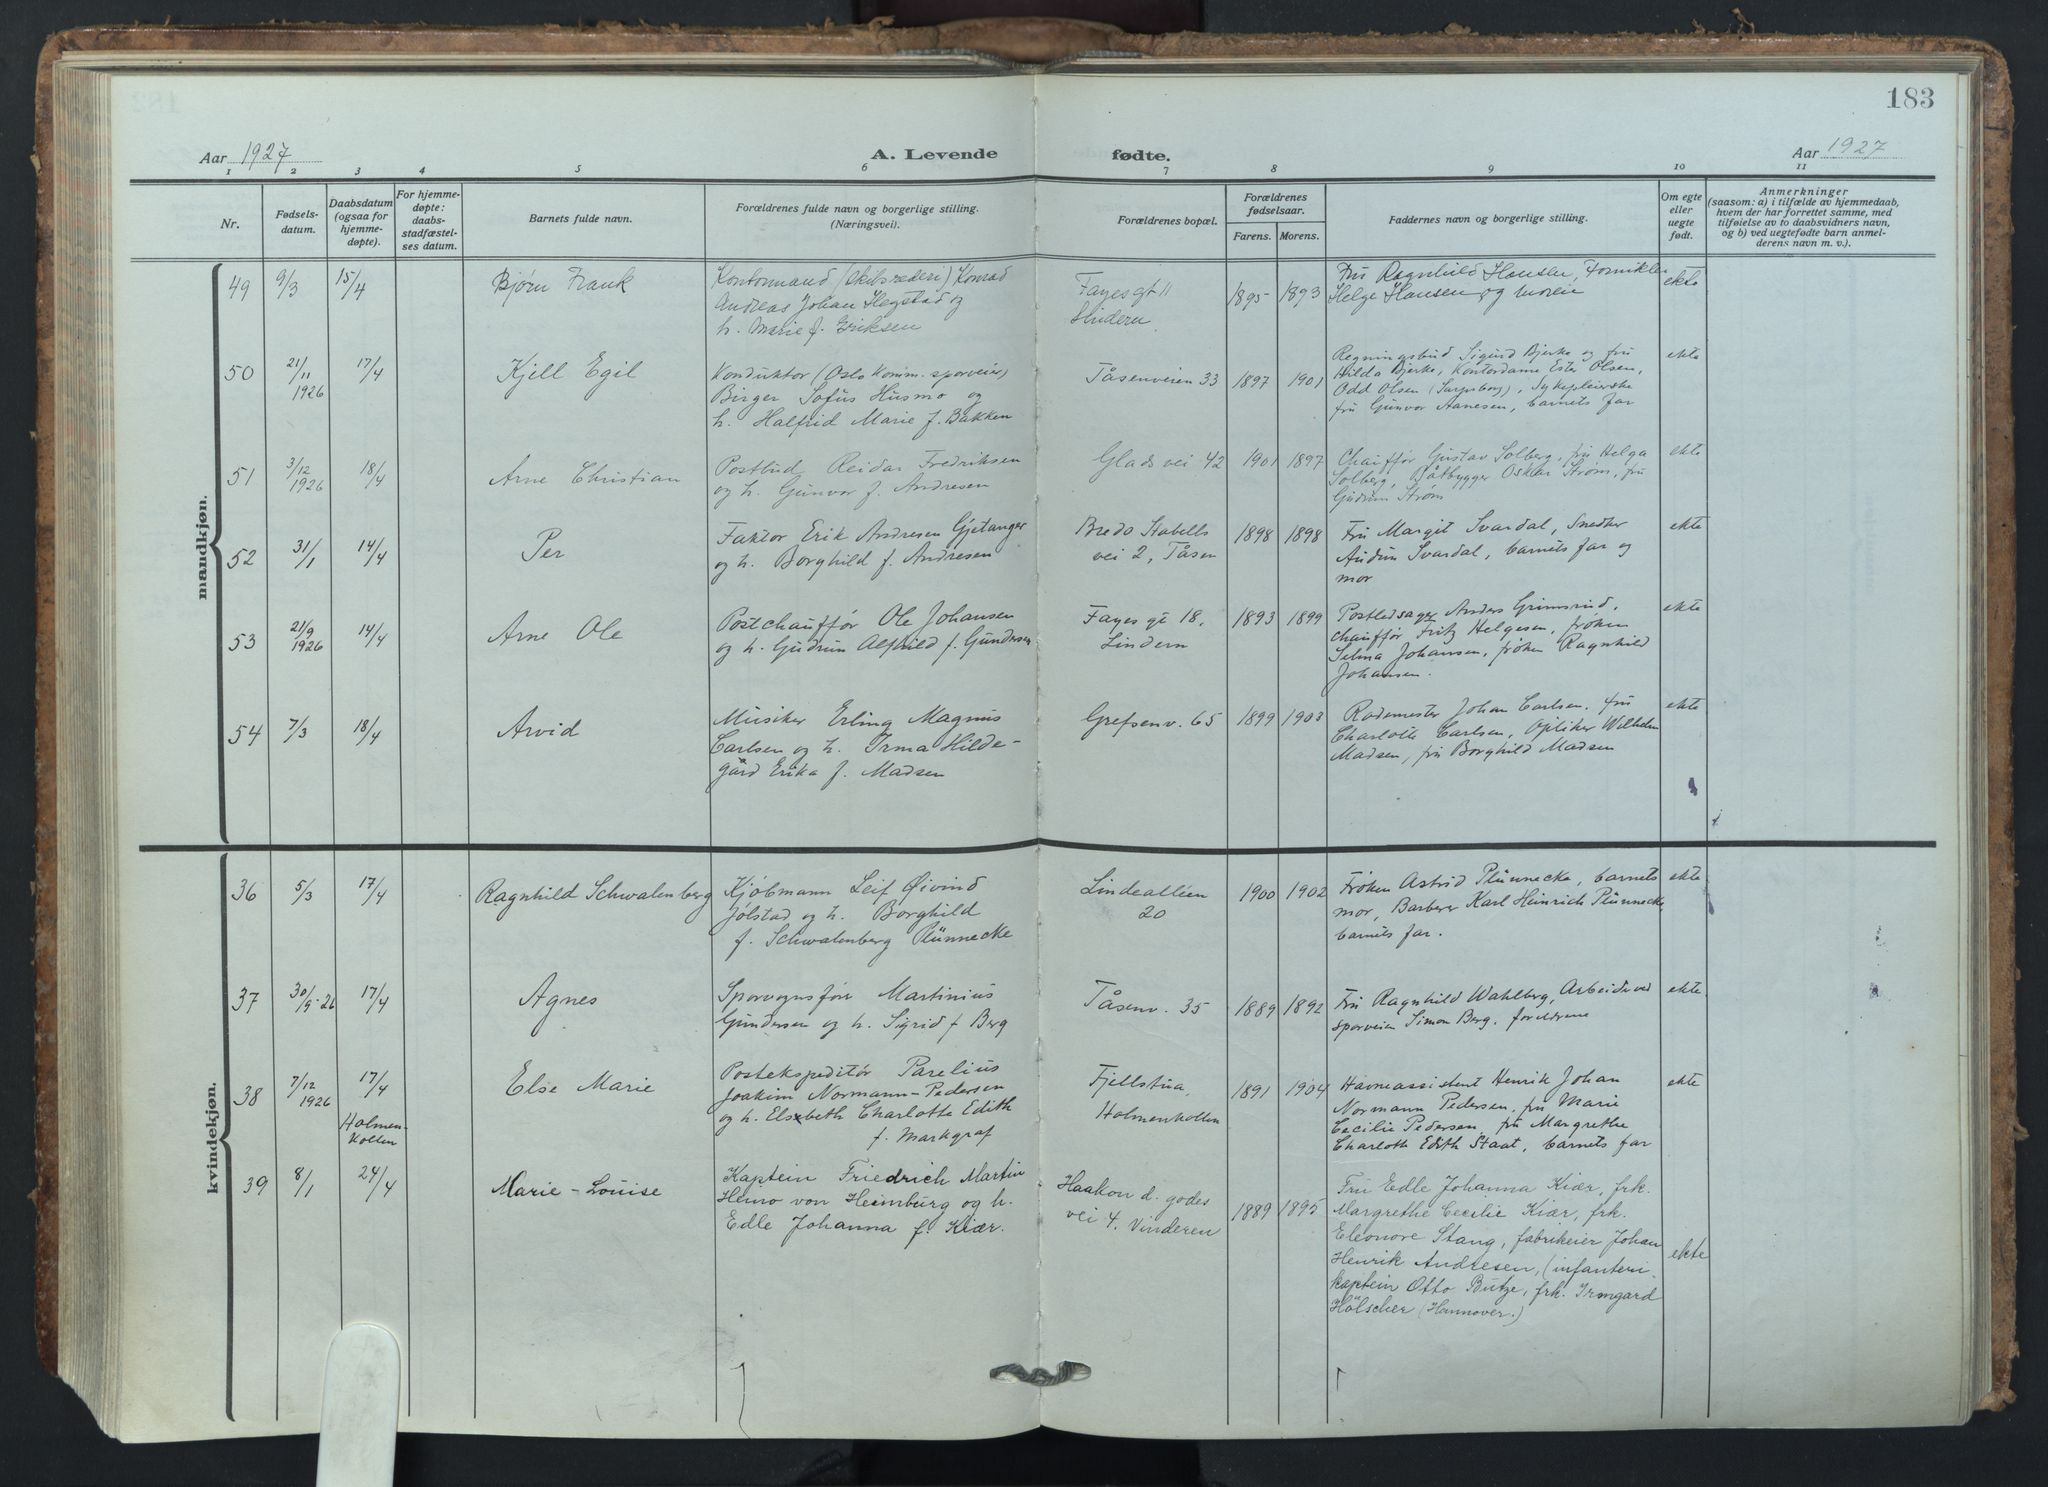 183
Aar 1927
A. Levende
fødte.
Aar 1927
1 2 3 4 5 6 7 8 9 10 11
Nr.
Fødsels-
datum.
Daabsdatum
(ogsaa for
hjemme-
døpte).
For hjemme-
døpte:
daabs-
stadfæstel-
ses datum.
Barnets fulde navn.
Forældrenes fulde navn og borgerlige stilling.
(Næringsvei).
Forældrenes bopæl.
Forældrenes
fødselsaar.
Farens. Morens.
Faddernes navn og borgerlige stilling.
Om egte
eller
uegte
født.
Anmerkninger
(saasom: a) i tilfælde av hjemmedaab,
hvem der har forrettet samme, med
tilføielse av to daabsvidners navn,
og b) ved uegtefødte barn anmel-
derens navn m. v.).
mandkjøn.
49 9/3 15/4 Bjørn Frank
Kontormand (skibsrederi) Konrad
Andreas Johan Hegstad og
h. Marie f. Eriksen
Fayesgt 11
Lindern
1895 1893
Fru Ragnhild Hansen,
Helge Hansen og moren
ekte
50 21/11 1926 17/4 Kjell Egil
Konduktør (Oslo komm. sporveier)
Birger Sofus Husmo og
h. Halfrid Marie f. Bakken
Tåsenveien 33
1897 1901
Regningsbud Sigurd Bjerke og fru
Hilda Bjerke, Kontordame Ester Olsen,
Odd Olsen (Sarpsborg), Sykepleierske
fru Gunvor Aanesen, barnets far
ekte
51 3/12 1926 18/4 Arne Christian
Postbud Reidar Fredriksen
og h. Gunvor f. Andresen
Glads vei 42
1901 1897
Chauffør Gustav Solberg, fru Helga
Solberg, Båtbygger Oskar Strøm, fru
Gudrun Strøm
ekte
52 31/1 14/4 Per
Faktor Erik Andresen Gjetanger
og h. Borghild f. Andresen
Bredo Stabells
vei 2, Tåsen
1898 1898
Fru Margit Svardal, Snedker
Audun Svardal, barnets far og
mor
ekte
53 21/9 1926 14/4 Arne Ole
Postchauffør Ole Johansen
og h. Gudrun Alfhild f. Gundersen
Fayes gt 18,
Lindern
1893 1899
Postledsager Anders Grimsrud,
chauffør Fritz Helgesen, frøken
Selma Johansen, frøken Ragnhild
Johansen.
ekte
54 7/3 18/4 Arvid
Musiker Erling Magnus
Carlsen og h. Irma Hilde-
gård Erika f. Madsen
Grefsenv. 65
1899 1903
Rodemester Johan Carlsen, fru
Charlotte Carlsen, Optiker Wilhelm
Madsen, fru Borghild Madsen
ekte
kvindekjøn.
36 5/3 17/4 Ragnhild Schwalenberg
Kjøbmann Leif Øivind
Jølstad og h. Borghild
f. Schwalenberg Plünnecke
Lindealléen
20
1900 1902
Frøken Astrid Plünnecke, barnets
mor, Barberer Karl Heinrich Plünnecke,
barnets far.
ekte
37 30/9-26 17/4 Agnes
Sporvognsfører Martinius
Gundersen og h. Sigrid f Berg
Tåsenv. 35
1889 1892
Fru Ragnhild Wahlberg, Arbeider ved
sporveien Simon Berg, foreldrene
ekte
38 7/12 1926 17/4 Holmen-
kollen
Else Marie
Postekspeditør Parelius
Joakim Normann-Pedersen
og h. Elsbeth Charlotte Edith
f. Markgraf
Fjellstua,
Holmenkollen
1891 1904
Havneassistent Henrik Johan
Normann Pedersen, fru Marie
Cecilie Pedersen, fru Margrethe
Charlotte Edith Staat, barnets far
ekte
39 8/1 24/4 Marie-Louise
Kaptein Friedrich Martin
Heino von Heimburg og h.
Edle Johanna f. Kiær.
Haakon d. godes
vei 4. Vinderen
1889 1895
Fru Edle Johanna Kiær, frk.
Margrethe Cecilie Kiær, frk.
Eleonore Stang, fabrikeier Johan
Henrik Andresen, (infanteri-
kaptein Otto Butze, frk. Irmgard
Hölscher (Hannover.)
ekte